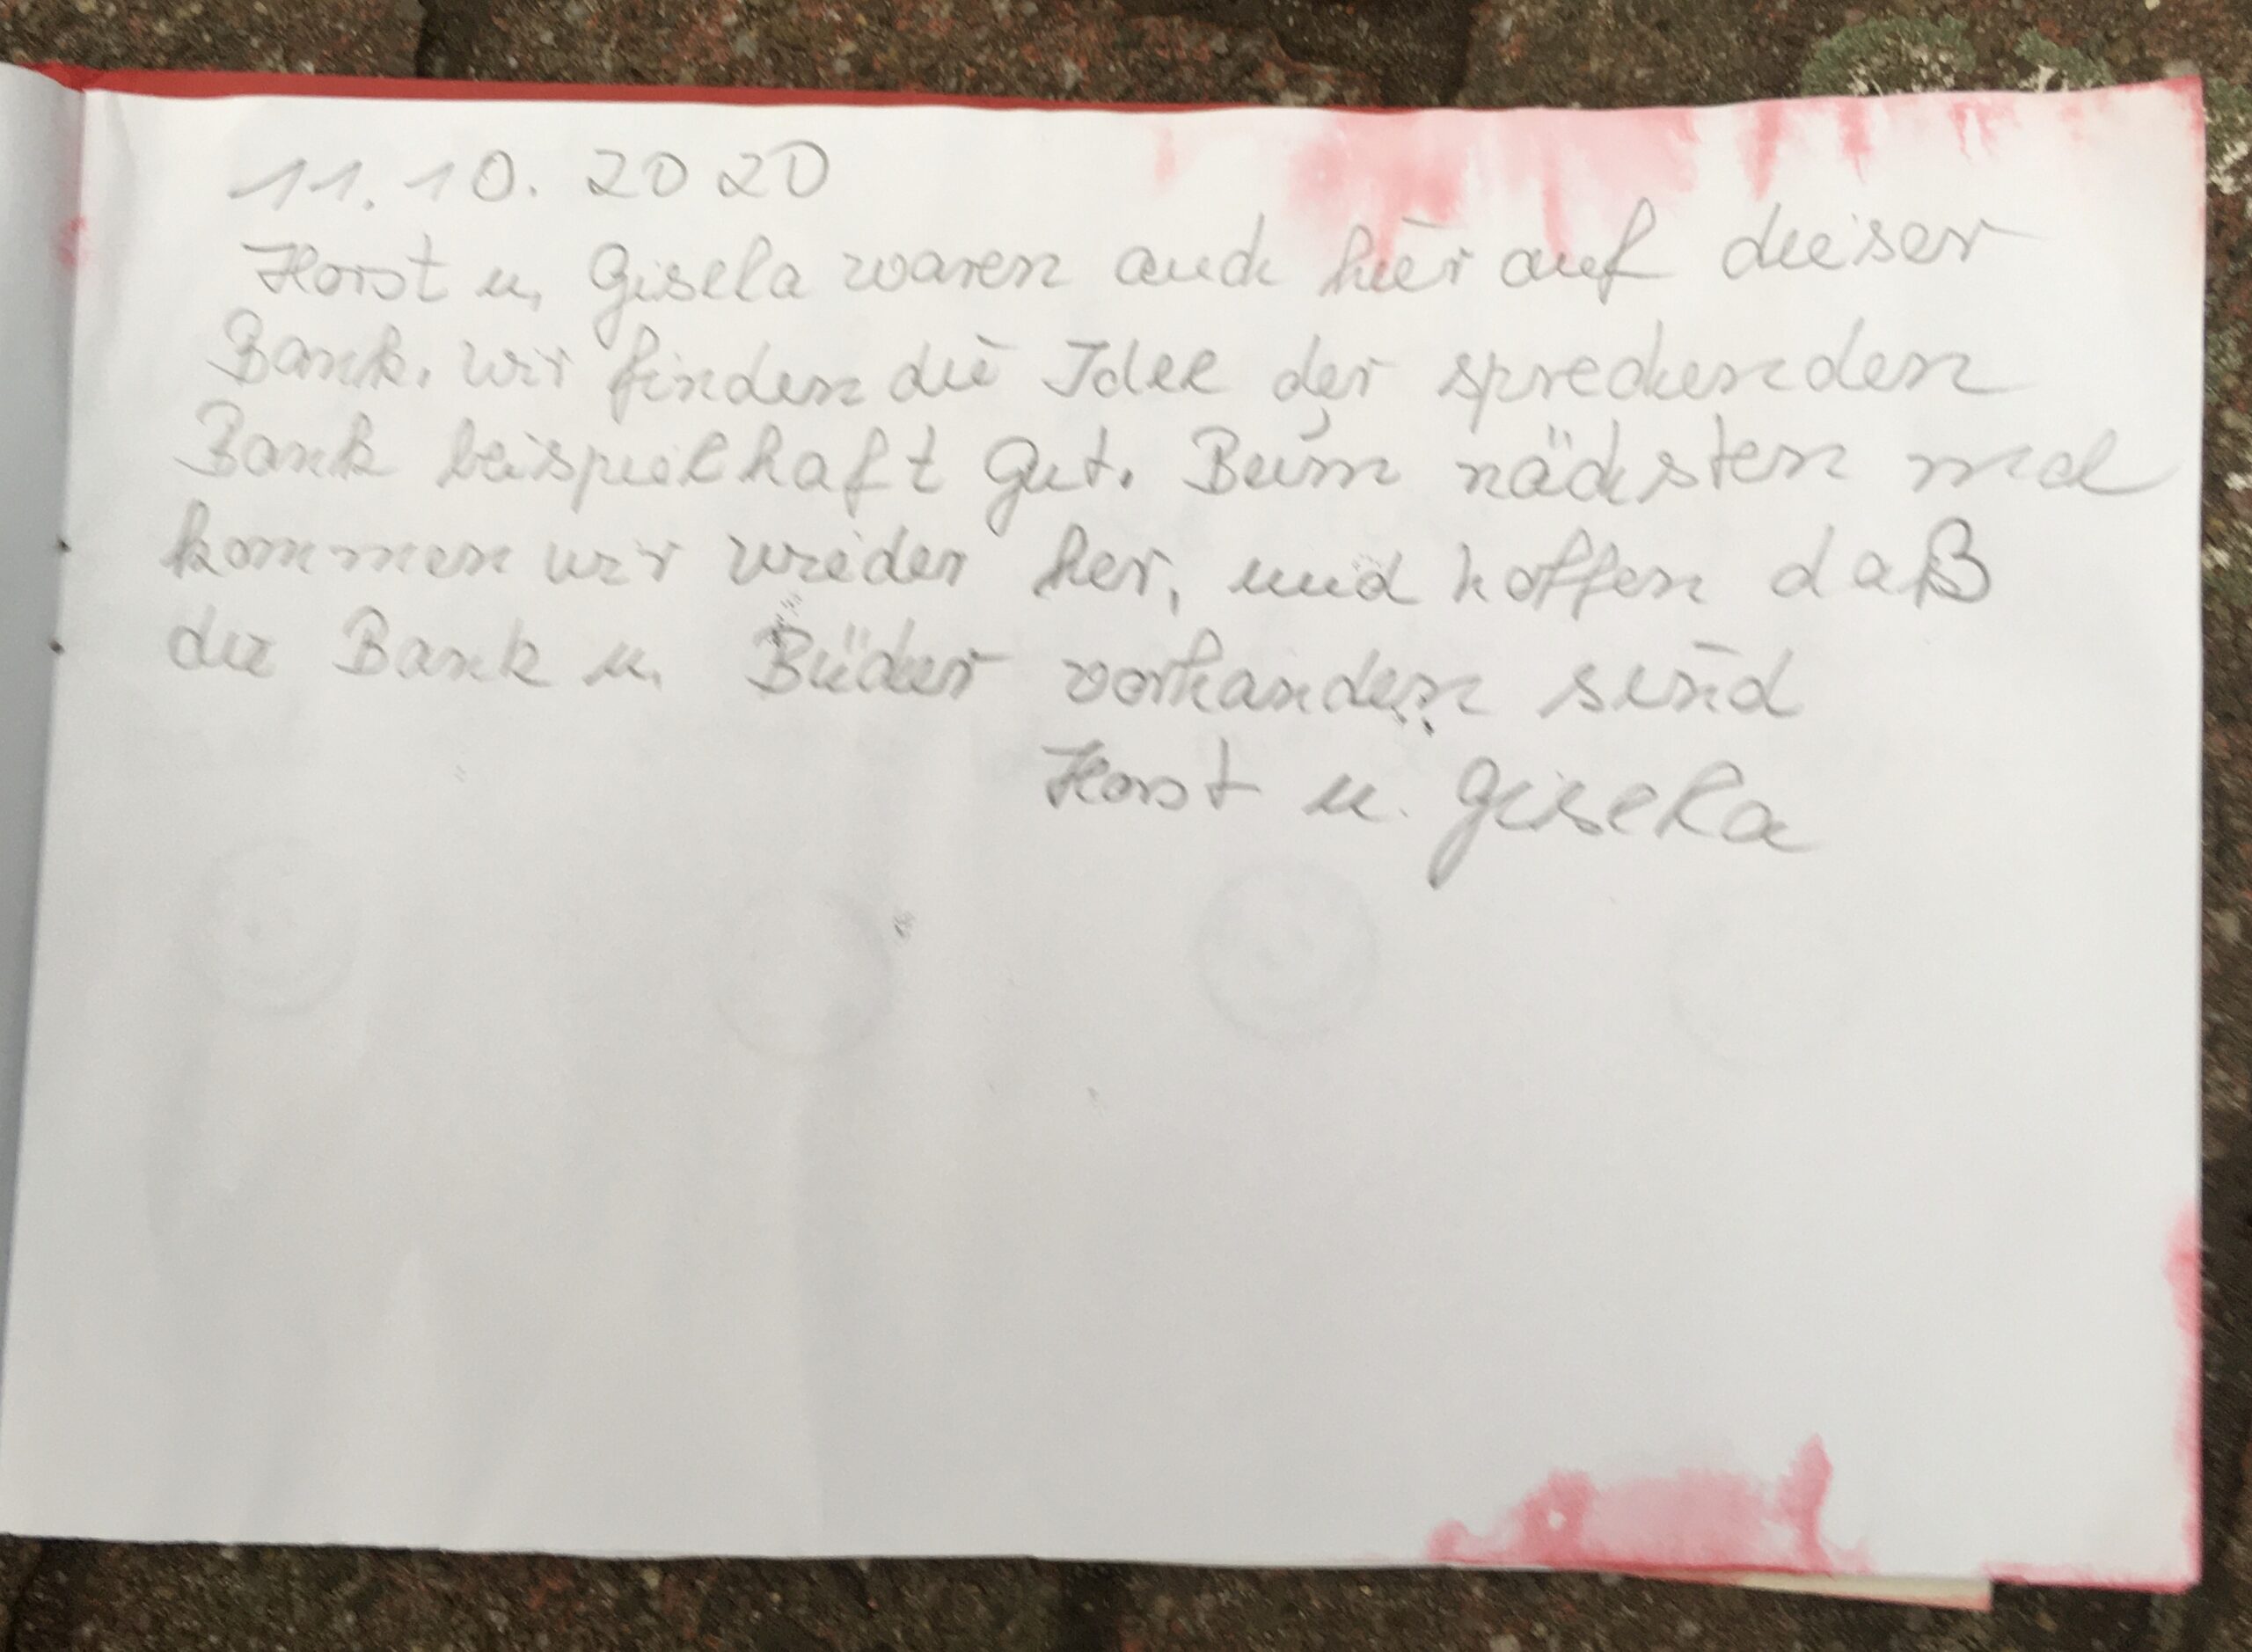 11.10.2020
Horst u. Gisela waren auch hier auf dieser
Bank. wir finden die Idee der sprechenden
Bank beispielhaft gut. Beim nächsten mal
kommen wir wieder her, und hoffen daß
die Bank u. Bücher vorhanden sind
Horst u. Gisela